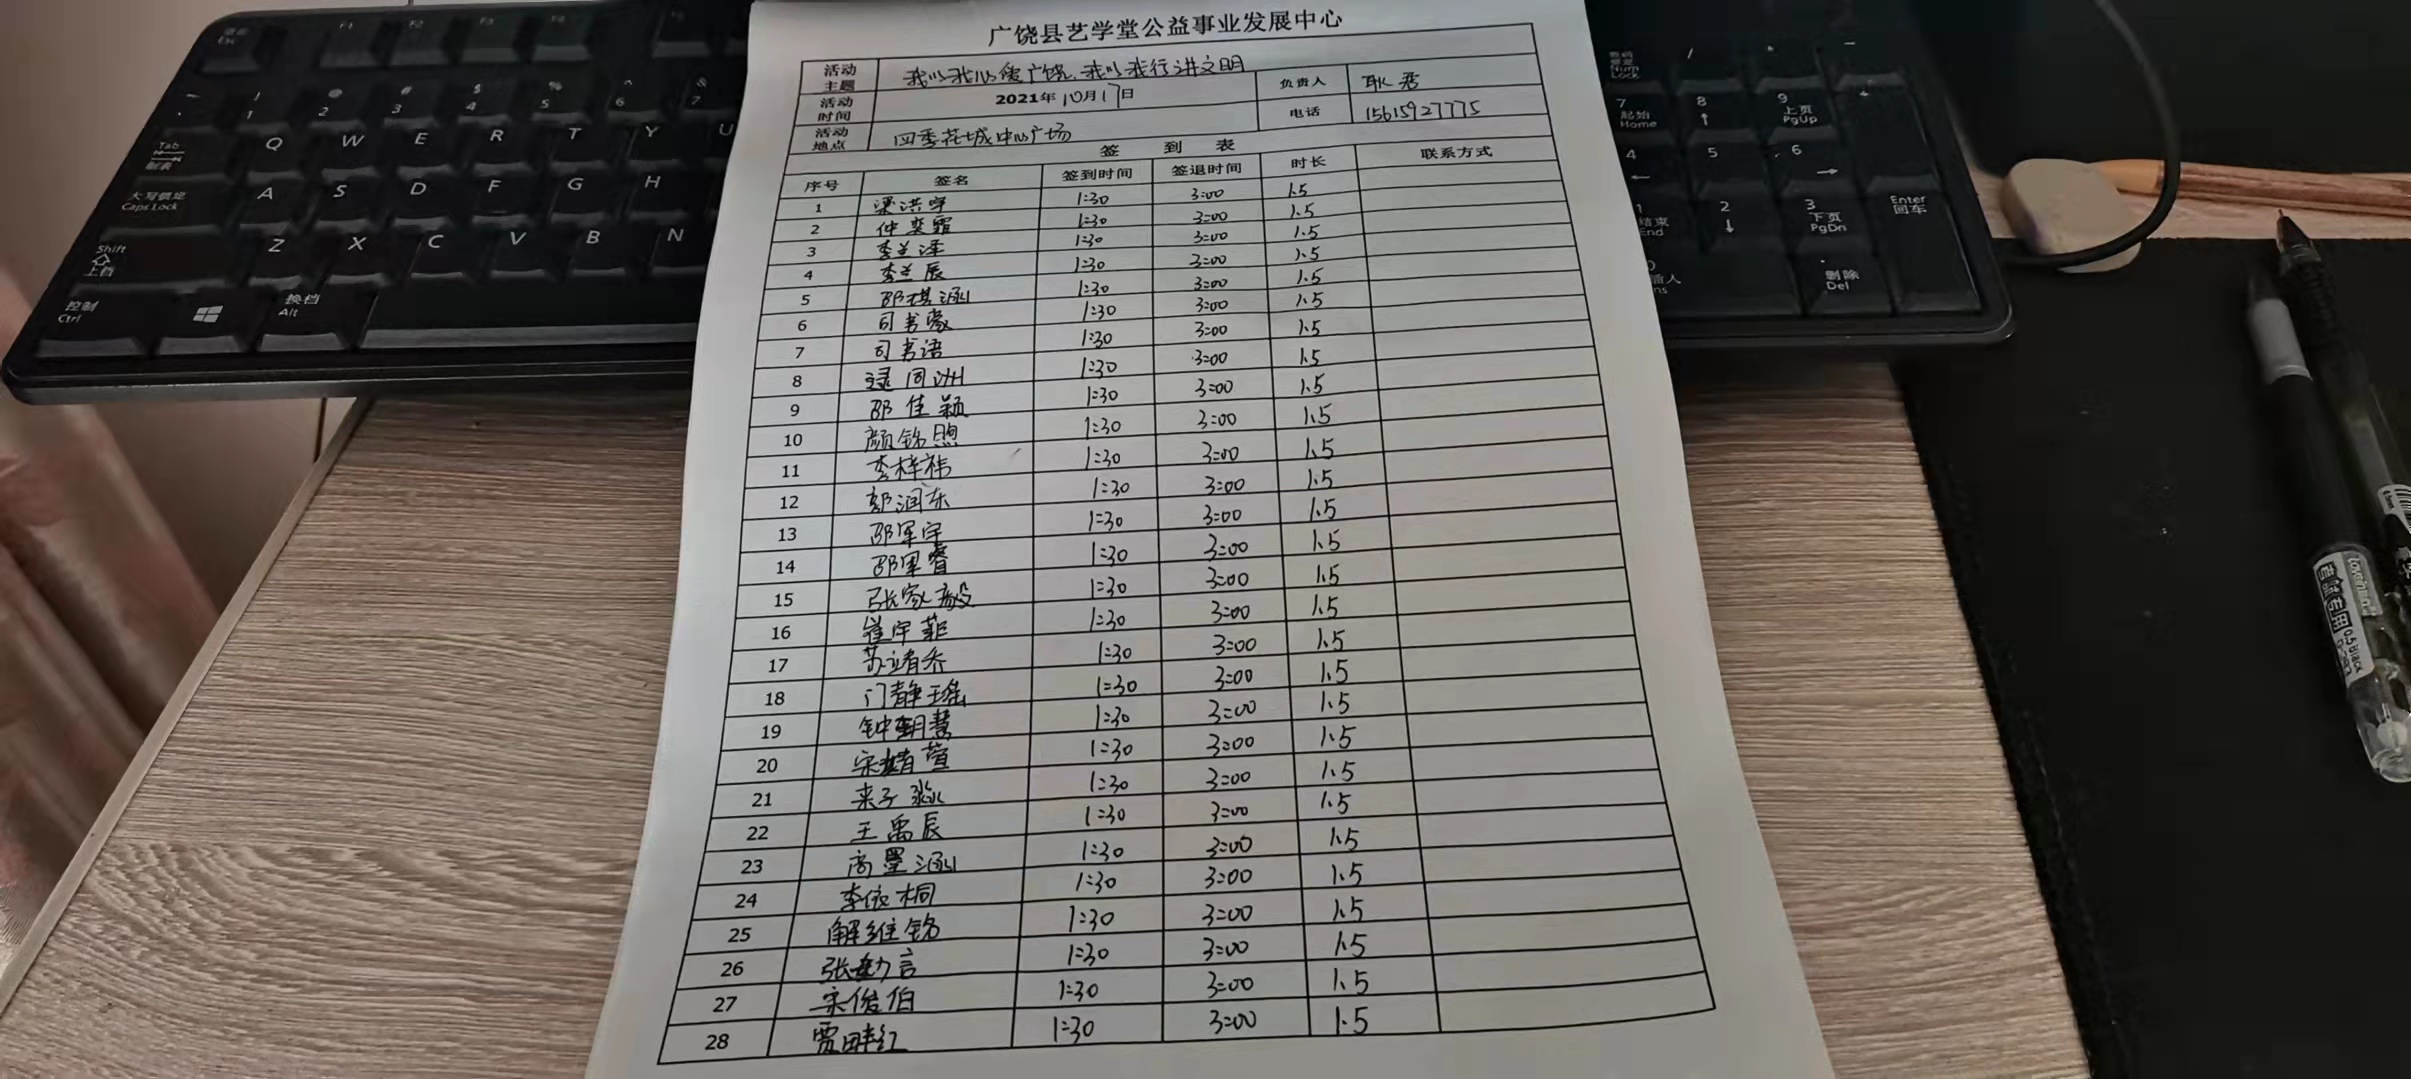 广饶县艺学堂公益事业发展中心
活动主题 我以我心爱广饶、我以我行讲文明 负责人 耿
活动时间 2021年10月17日 电话 15615927775
活动地点 四季花城中心广场
签到表
序号 签名 签到时间 签退时间 时长 联系方式
1 梁洪宇 1:30 3:00 1.5
2 仲奕霏 1:30 3:00 1.5
3 李兰泽 1:30 3:00 1.5
4 李兰辰 1:30 3:00 1.5
5 邵琪涵 1:30 3:00 1.5
6 司书豪 1:30 3:00 1.5
7 司书语 1:30 3:00 1.5
8 逯同洲 1:30 3:00 1.5
9 邵佳颖 1:30 3:00 1.5
10 颜铭煦 1:30 3:00 1.5
11 李梓祎 1:30 3:00 1.5
12 郭润东 1:30 3:00 1.5
13 邵军宇 1:30 3:00 1.5
14 邵军睿 1:30 3:00 1.5
15 张家毅 1:30 3:00 1.5
16 崔宇菲 1:30 3:00 1.5
17 苏靖乔 1:30 3:00 1.5
18 门静瑶 1:30 3:00 1.5
19 钟朝慧 1:30 3:00 1.5
20 宋婧萱 1:30 3:00 1.5
21 来子淼 1:30 3:00 1.5
22 王禹辰 1:30 3:00 1.5
23 高墨涵 1:30 3:00 1.5
24 李依桐 1:30 3:00 1.5
25 解维铭 1:30 3:00 1.5
26 张勍言 1:30 3:00 1.5
27 宋俊伯 1:30 3:00 1.5
28 贾畔红 1:30 3:00 1.5